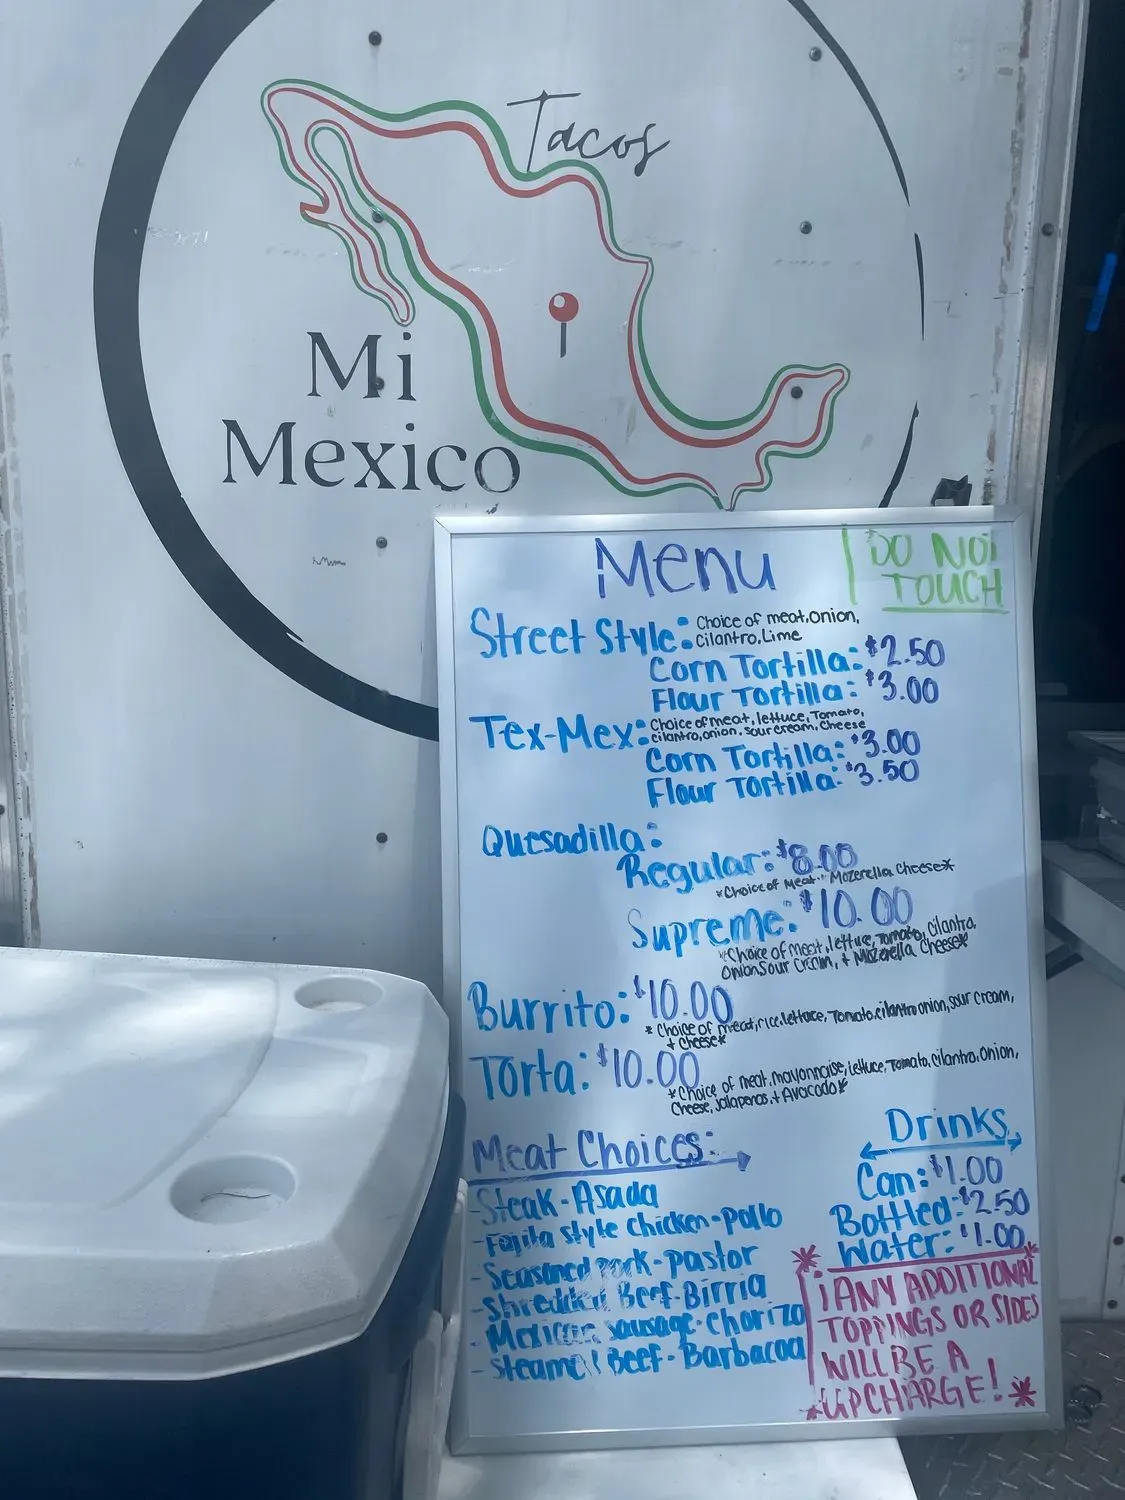 Tacos
Mi
Mexico
Menu
DO NOT
TOUCH
Street Style: Choice of meat, Onion,
cilantro, Lime
Corn Tortilla: $2.50
Flour Tortilla: $3.00
Tex-Mex: Choice of meat, lettuce, Tomato,
cilantro, onion, sour cream, cheese
Corn Tortilla: $3.00
Flour Tortilla: $3.50
Quesadilla:
Regular: $8.00
*Choice of Meat + Mozerella Cheese*
Supreme: $10.00
*Choice of meat, lettuce, Tomato, cilantro,
Onion Sour Cream, + Mozerella Cheese*
Burrito: $10.00
* Choice of meat, rice, lettuce, Tomato, cilantro onion, sour cream,
+ Cheese*
Torta: $10.00
*Choice of meat, mayonnaise, lettuce, Tomato, cilantro, Onion,
Cheese, Jalapenos, + Avocado*
Meat Choices:
-Steak-Asada
-Fajita style chicken-pollo
-Seasoned pork-pastor
-Shredded Beef-Birria
-Mexican sausage-chorizo
-Steamed Beef-Barbacoa
Drinks
Can: $1.00
Bottled: $2.50
Water: $1.00
* ¡ANY ADDITIONAL *
TOPPINGS OR SIDES
WILL BE A
*UPCHARGE! *